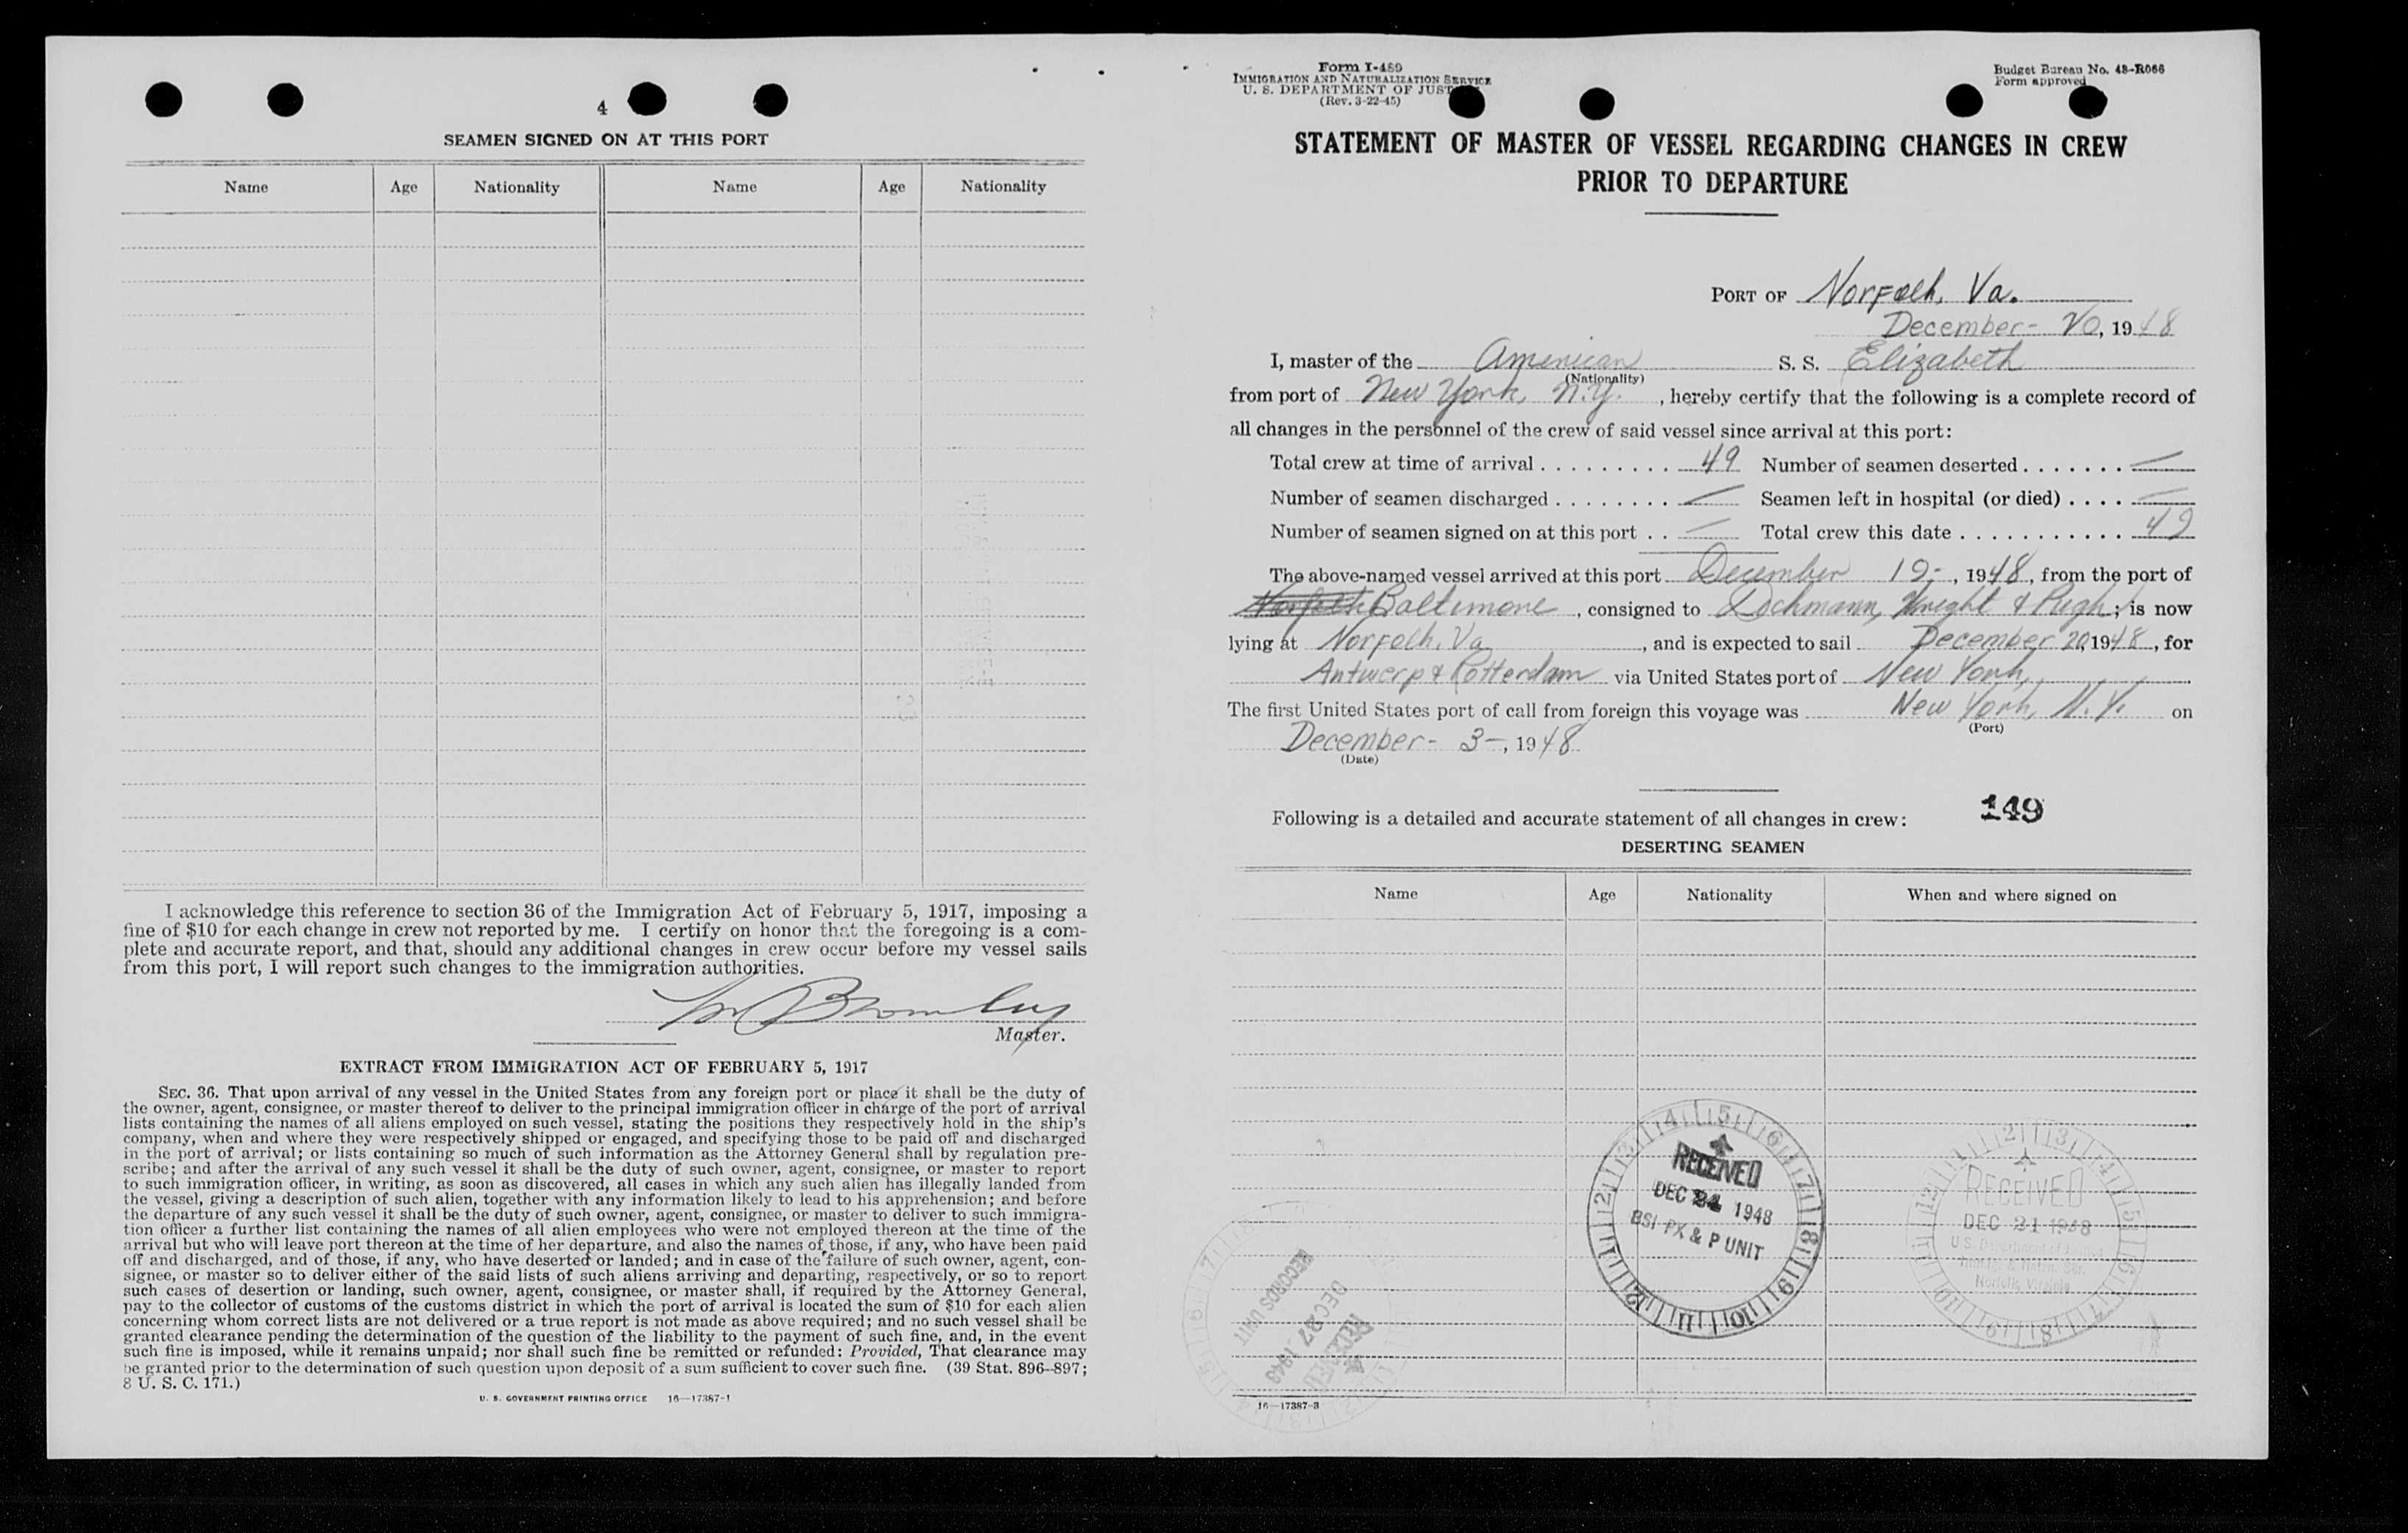 4
SEAMEN SIGNED ON AT THIS PORT
Name Age Nationality Name Age Nationality
I acknowledge this reference to section 36 of the Immigration Act of February 5, 1917, imposing a
fine of $10 for each change in crew not reported by me. I certify on honor that the foregoing is a com-
plete and accurate report, and that, should any additional changes in crew occur before my vessel sails
from this port, I will report such changes to the immigration authorities.
Master.
EXTRACT FROM IMMIGRATION ACT OF FEBRUARY 5, 1917
SEC. 36. That upon arrival of any vessel in the United States from any foreign port or place it shall be the duty of
the owner, agent, consignee, or master thereof to deliver to the principal immigration officer in charge of the port of arrival
lists containing the names of all aliens employed on such vessel, stating the positions they respectively hold in the ship's
company, when and where they were respectively shipped or engaged, and specifying those to be paid off and discharged
in the port of arrival; or lists containing so much of such information as the Attorney General shall by regulation pre-
scribe; and after the arrival of any such vessel it shall be the duty of such owner, agent, consignee, or master to report
to such immigration officer, in writing, as soon as discovered, all cases in which any such alien has illegally landed from
the vessel, giving a description of such alien, together with any information likely to lead to his apprehension; and before
the departure of any such vessel it shall be the duty of such owner, agent, consignee, or master to deliver to such immigra-
tion officer a further list containing the names of all alien employees who were not employed thereon at the time of the
arrival but who will leave port thereon at the time of her departure, and also the names of those, if any, who have been paid
off and discharged, and of those, if any, who have deserted or landed; and in case of the failure of such owner, agent, con-
signee, or master so to deliver either of the said lists of such aliens arriving and departing, respectively, or so to report
such cases of desertion or landing, such owner, agent, consignee, or master shall, if required by the Attorney General,
pay to the collector of customs of the customs district in which the port of arrival is located the sum of $10 for each alien
concerning whom correct lists are not delivered or a true report is not made as above required; and no such vessel shall be
granted clearance pending the determination of the question of the liability to the payment of such fine, and, in the event
such fine is imposed, while it remains unpaid; nor shall such fine be remitted or refunded: Provided, That clearance may
be granted prior to the determination of such question upon deposit of a sum sufficient to cover such fine. (39 Stat. 896–897;
8 U. S. C. 171.)
U. S. GOVERNMENT PRINTING OFFICE 16—17387-1
Form I-489
IMMIGRATION AND NATURALIZATION SERVICE
U. S. DEPARTMENT OF JUST
(Rev. 3-22-45)
Budget Bureau No. 43-R066
Form approved
STATEMENT OF MASTER OF VESSEL REGARDING CHANGES IN CREW
PRIOR TO DEPARTURE
PORT OF Norfolk, Va.
December - 20, 1948
I, master of the American S. S. Elizabeth
(Nationality)
from port of New York, N.Y. , hereby certify that the following is a complete record of
all changes in the personnel of the crew of said vessel since arrival at this port:
Total crew at time of arrival . . . . . . . . . . 49 Number of seamen deserted . . . . . . . —
Number of seamen discharged . . . . . . . . — Seamen left in hospital (or died) . . . . —
Number of seamen signed on at this port . . — Total crew this date . . . . . . . . . . . . 49
The above-named vessel arrived at this port December 19 -, 1948, from the port of
Norfolk Baltimore , consigned to Dochmann, Wright & Pugh; is now
lying at Norfolk, Va , and is expected to sail December 20, 1948, for
Antwerp & Rotterdam via United States port of New York,
The first United States port of call from foreign this voyage was New York, N. Y. on
(Port)
December - 3 -, 1948
(Date)
149
Following is a detailed and accurate statement of all changes in crew:
DESERTING SEAMEN
Name Age Nationality When and where signed on
RECEIVED
DEC 1948
BSI PX & P UNIT
RECEIVED
DEC 21 1948
U.S. Department of Justice
Norfolk, Virginia
RECEIVED
DEC 27 1948
RECORDS UNIT
16—17387-3